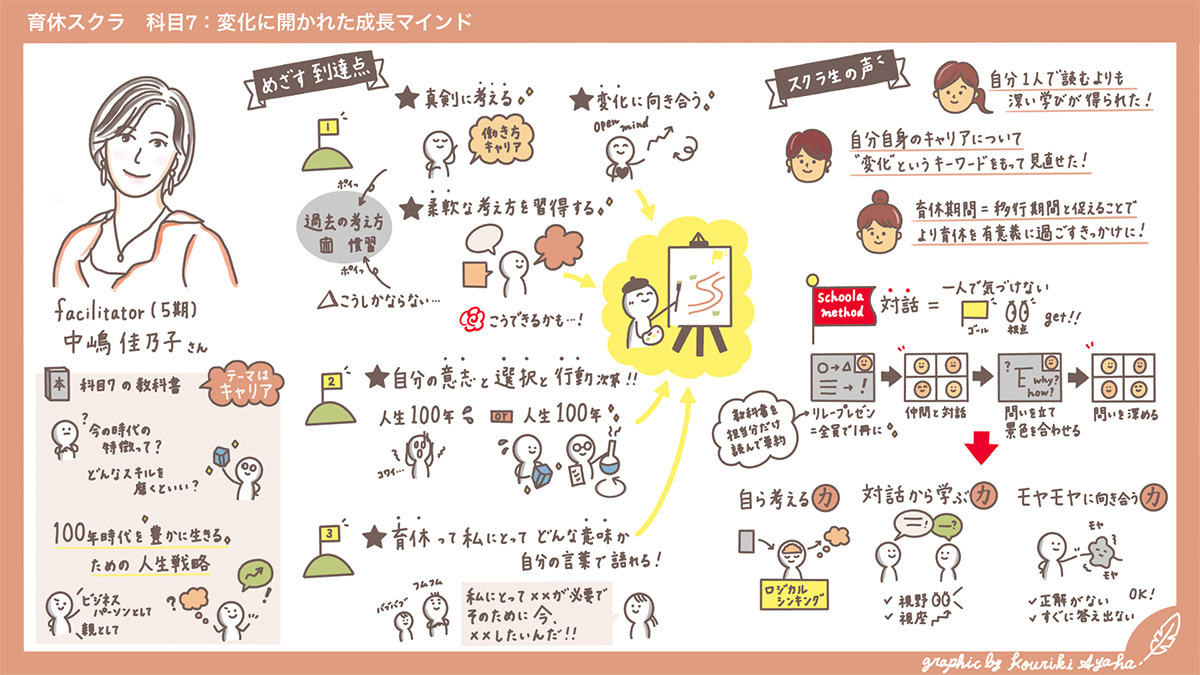 育休スクラ 科目7：変化に開かれた成長マインド
facilitator(5期)
中嶋 佳乃子さん
本
科目7の教科書
テーマは
キャリア
?
今の時代の
特徴って?
どんなスキルを
磨くといい?
100年時代を豊かに生きる。
ための 人生戦略
ビジネス
パーソンとして
親として
?
!
めざす到達点
1
★真剣に考える。
働き方
キャリア
★変化に向き合う。
open
mind
ポイっ
過去の考え方
慣習
ポイっ
★柔軟な考え方を習得する。
△こうしかならない…
こうできるかも…!
2
★自分の意志と選択と行動次第!!
人生100年
or
人生100年
コワイ…
3
★育休って私にとってどんな意味か
自分の言葉で語れる!
バブバブ
フムフム
私にとって××が必要で
そのために今、
××したいんだ!!
スクラ生の声
自分1人で読むよりも
深い学びが得られた!
自分自身のキャリアについて
"変化"というキーワードをもって見直せた!
育休期間=移行期間と促えることで
より育休を有意義に過ごすきっかけに!
Schoola
method
対話=
一人で気づけない
ゴール
視点
get!!
教科書を
担当分だけ
読んで要約
○→△
!
リレープレゼン
=全員で1冊に
仲間と対話
?
why?
how?
問いを立て
景色を合わせる
問いを深める
自ら考える力
ロジカル
シンキング
対話から学ぶ力
?
✓視野
✓視座
モヤモヤに向き合う力
モヤ
モヤ
✓正解がない
✓すぐに答え出ない
OK!
graphic by Kouriki Ayaha.